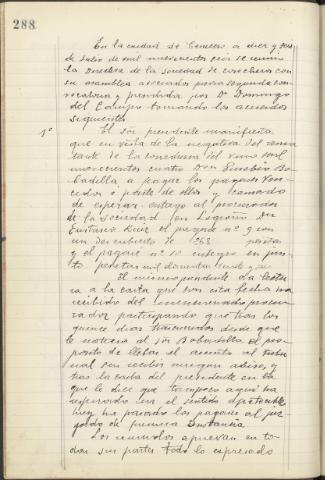 288
En la ciudad de Cenicero a diez y seis
de Julio de mil novecientos seis se reunio
la Directiva de la sociedad de cosecheros con
su asamblea asociados para segunda con
vocatoria y presidida por Dn Domingo
del Campo tomando los acuerdos
siguientes
1º El Sör presidente manifiesta
que en vista de la negativa del rema
tante de la venta del vino
novecientos cuatro Dn Eusebio Bo
badilla a pagar los pagares ven
cidos ó parte de ellos y cansado
de esperar entrego al procurador
de la Sociedad en Logroño Dn
Eustasio Ruiz el pagaré nº 9 con
un descubierto de 268 pesetas
y el pagaré nº 10 integro en
pesetas mil doscientas
El mismo presidente da lectu
ra a la carta que con esta fecha ha
recibido del mencionado procu
rador participando que tras los
quince dias trascurridos desde que
le noticio al sör Bobadilla el pro
posito de llevar el asunto al tribu
nal sin recibir ningun aviso, y
tras la carta del presidente en la
que le dice que tampoco aqui ha
respirado en el sentido
hoy ha pasado los pagares al juz
gado de primera Instancia
Los reunidos aprueban en to
das sus partes todo lo expresado